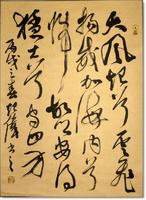 大風起兮雲飛
揚威加海内兮
歸故鄉安得
猛士兮守四方
丙戌之春